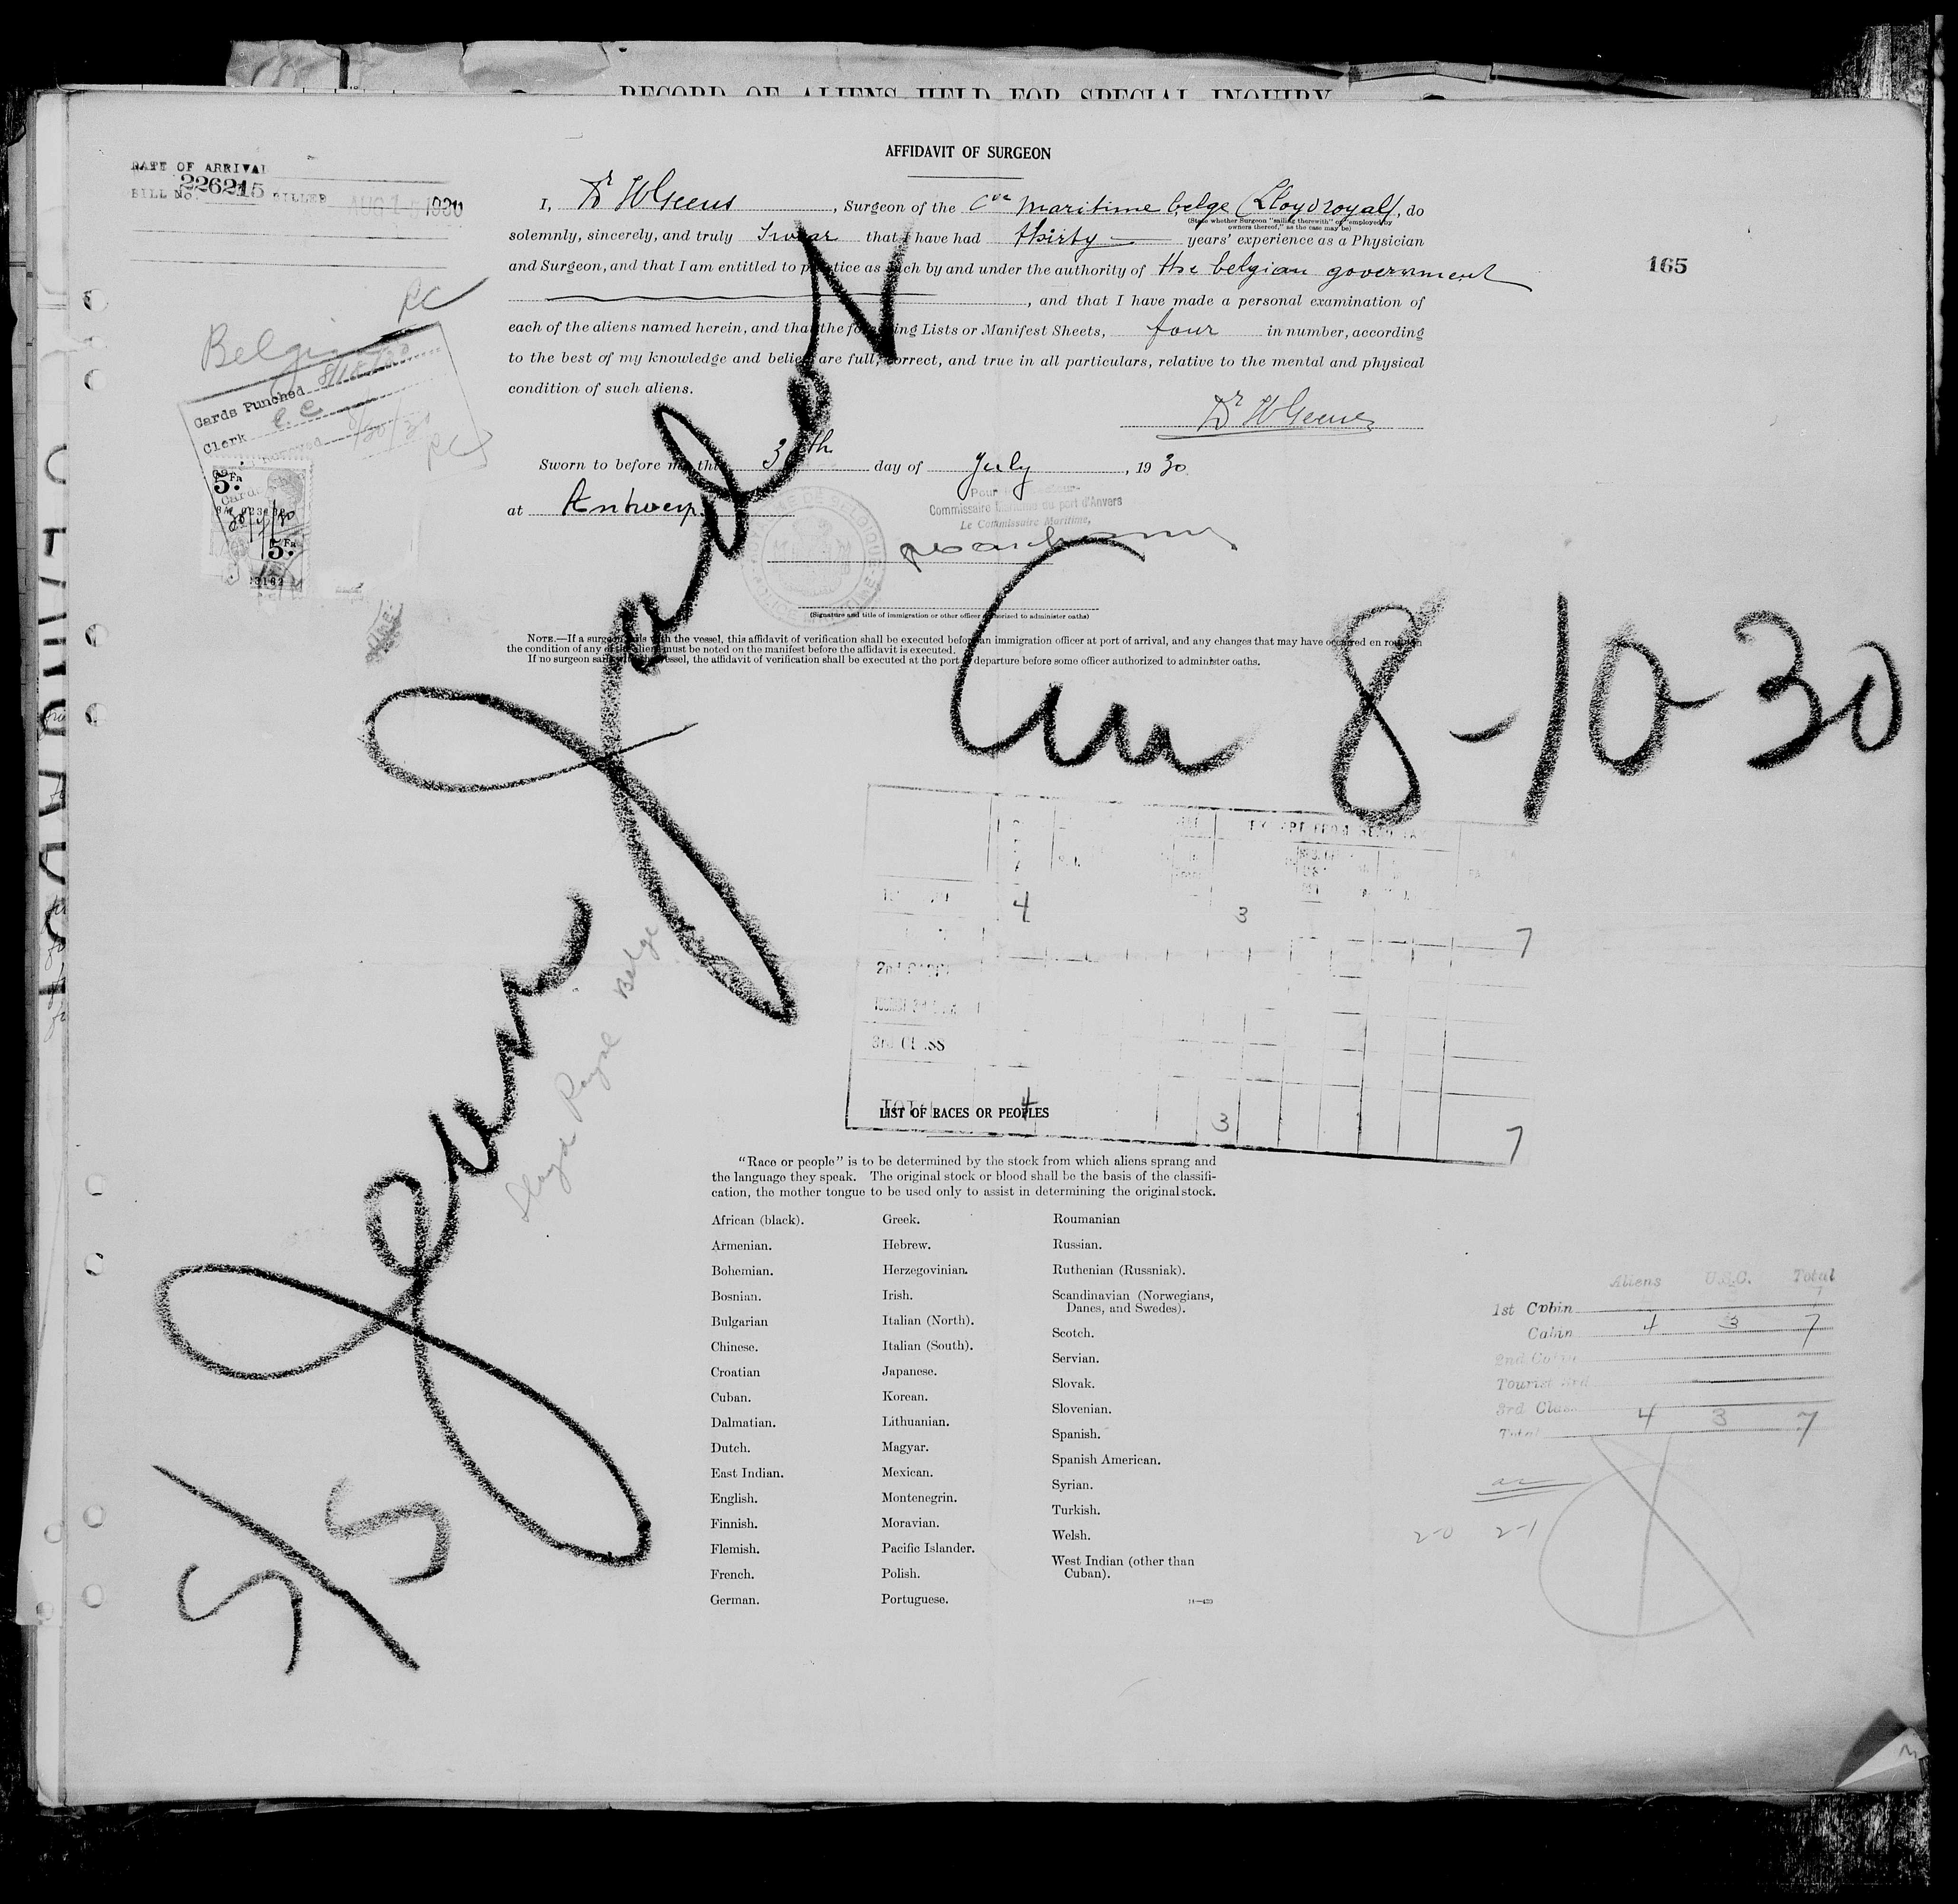 RECORD OF ALIENS HELD FOR SPECIAL INQUIRY
AFFIDAVIT OF SURGEON
DATE OF ARRIVAL
BILL No. 226215 FILLED AUG 1 1930
I, Dr WGeens, Surgeon of the Cie Maritime belge (Lloyd royal), do
(State whether Surgeon "sailing therewith" or "employed by
owners thereof," as the case may be)
solemnly, sincerely, and truly Swear that I have had thirty years' experience as a Physician
and Surgeon, and that I am entitled to practice as such by and under the authority of the belgian government
165
, and that I have made a personal examination of
each of the aliens named herein, and that the foregoing Lists or Manifest Sheets, four in number, according
to the best of my knowledge and belief, are full, correct, and true in all particulars, relative to the mental and physical
condition of such aliens.
Dr WGeens
RC
Cards Punched 8/18/30
Clerk C.C
Sworn to before me this 30th day of July, 1930
at Antwerp
Commissaire Maritime du port d'Anvers
Le Commissaire Maritime,
5 Fa
30/7/30
5 Fa
(Signature and title of immigration or other officer authorized to administer oaths)
NOTE.—If a surgeon sails with the vessel, this affidavit of verification shall be executed before an immigration officer at port of arrival, and any changes that may have occurred en route in
the condition of any of the aliens must be noted on the manifest before the affidavit is executed.
If no surgeon sails with the vessel, the affidavit of verification shall be executed at the port of departure before some officer authorized to administer oaths.
S/S Jean Jadot
8-10-30
Lloyd Royal Belge
4 3 7
2nd CABIN
3rd CLASS
TOTAL 4 3 7
LIST OF RACES OR PEOPLES
"Race or people" is to be determined by the stock from which aliens sprang and
the language they speak. The original stock or blood shall be the basis of the classifi-
cation, the mother tongue to be used only to assist in determining the original stock.
African (black).
Armenian.
Bohemian.
Bosnian.
Bulgarian
Chinese.
Croatian
Cuban.
Dalmatian.
Dutch.
East Indian.
English.
Finnish.
Flemish.
French.
German.
Greek.
Hebrew.
Herzegovinian.
Irish.
Italian (North).
Italian (South).
Japanese.
Korean.
Lithuanian.
Magyar.
Mexican.
Montenegrin.
Moravian.
Pacific Islander.
Polish.
Portuguese.
Roumanian
Russian.
Ruthenian (Russniak).
Scandinavian (Norwegians,
Danes, and Swedes).
Scotch.
Servian.
Slovak.
Slovenian.
Spanish.
Spanish American.
Syrian.
Turkish.
Welsh.
West Indian (other than
Cuban).
Aliens U.S.C. Total
1st Cabin
Cabin 4 3 7
2nd Cabin
Tourist 3rd
3rd Class
Total 4 3 7
2-0 2-1